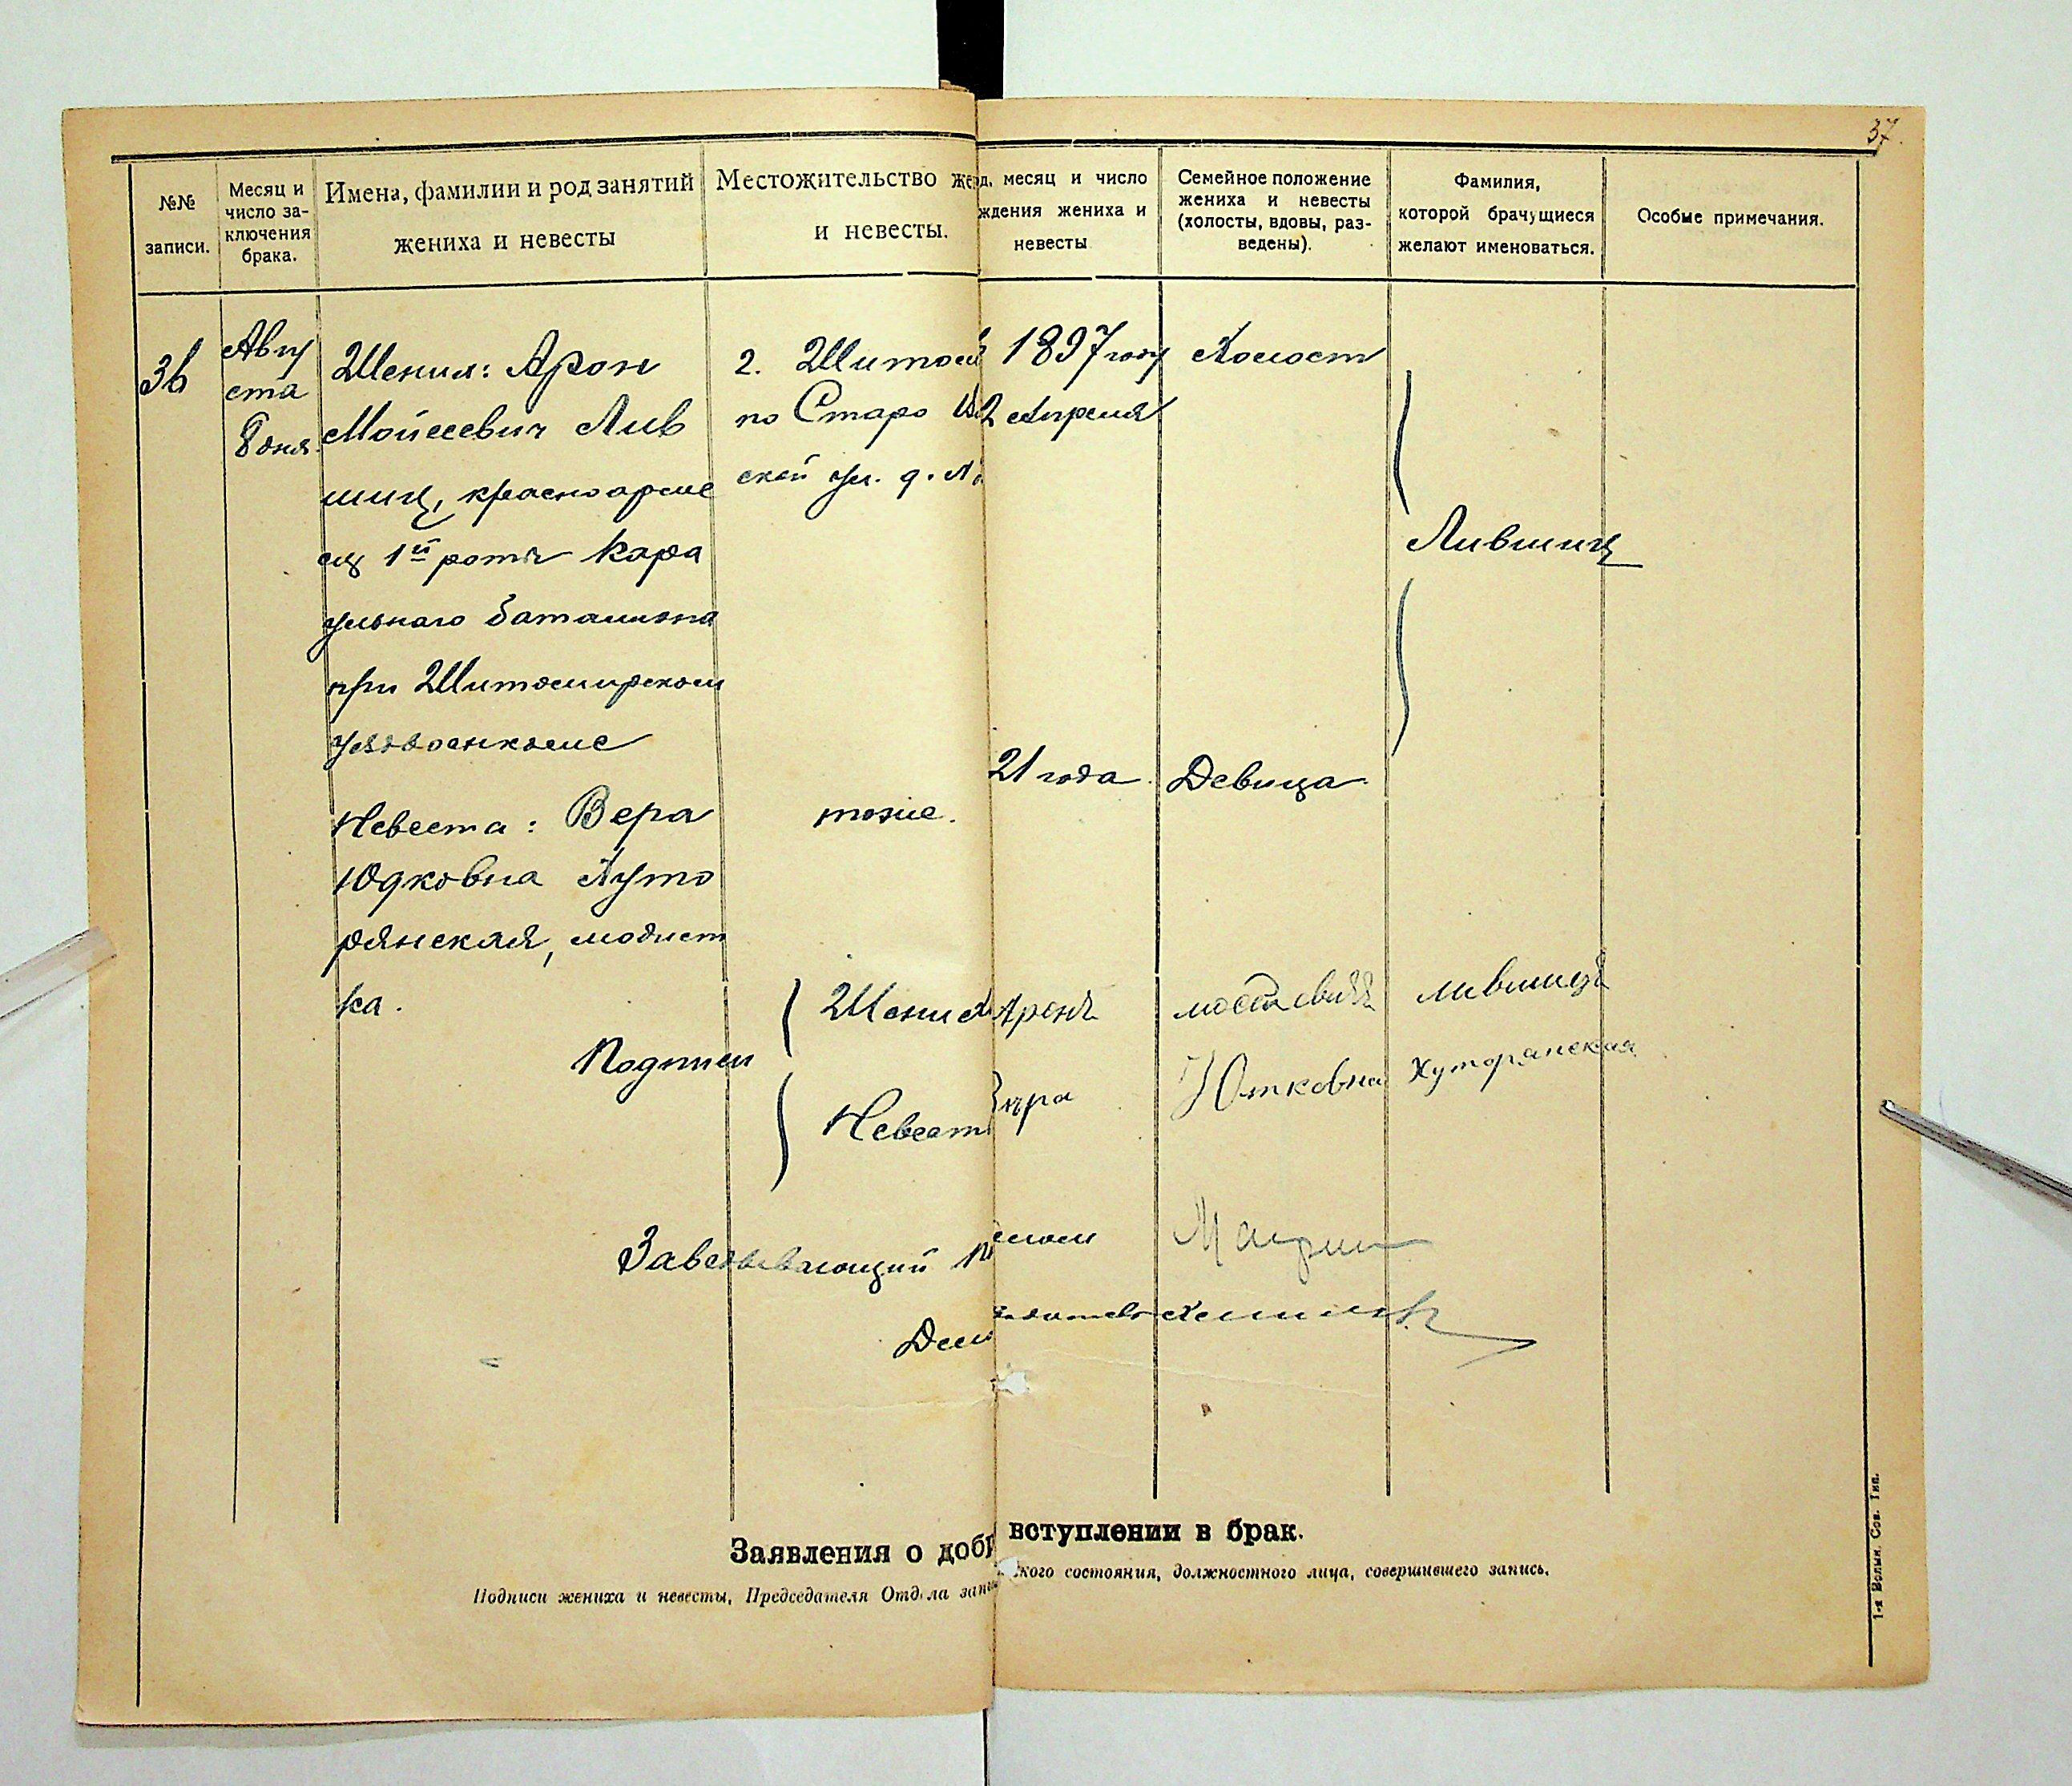 37.
№№ записи.
Месяц и число заключения брака.
Имена, фамилии и род занятий жениха и невесты
Местожительство же
и невесты.
д, месяц и число
ждения жениха и
невесты
Семейное положение
жениха и невесты
(холосты, вдовы, раз-
ведены).
Фамилия,
которой брачущиеся
желают именоваться.
Особые примечания.
36
Авгу
ста
8 дня
Жених: Арон
Мойсеевич Лив
шиц, красноарме
ец 1й роты Кара
ульнаго баталиона
при Житомирском
уездвоенкоме
г. Житом
по Старо
ской ул. д.
1897 году
2 Апреля
Холост
Лившиц
Невеста: Вера
Юдковна Хуто
рянская, модист
ка.
тоже.
21 года.
Девица
Подписи
Жених
Аронъ
Лившицъ
Невест
Ютковна Хуторянская
Заведывающий
Заявления о добр
вступлении в брак.
Подписи жениха и невесты, Председателя Отдела запи
кого состояния, должностного лица, совершившего запись.
1-я Волын. Сов. Тип.